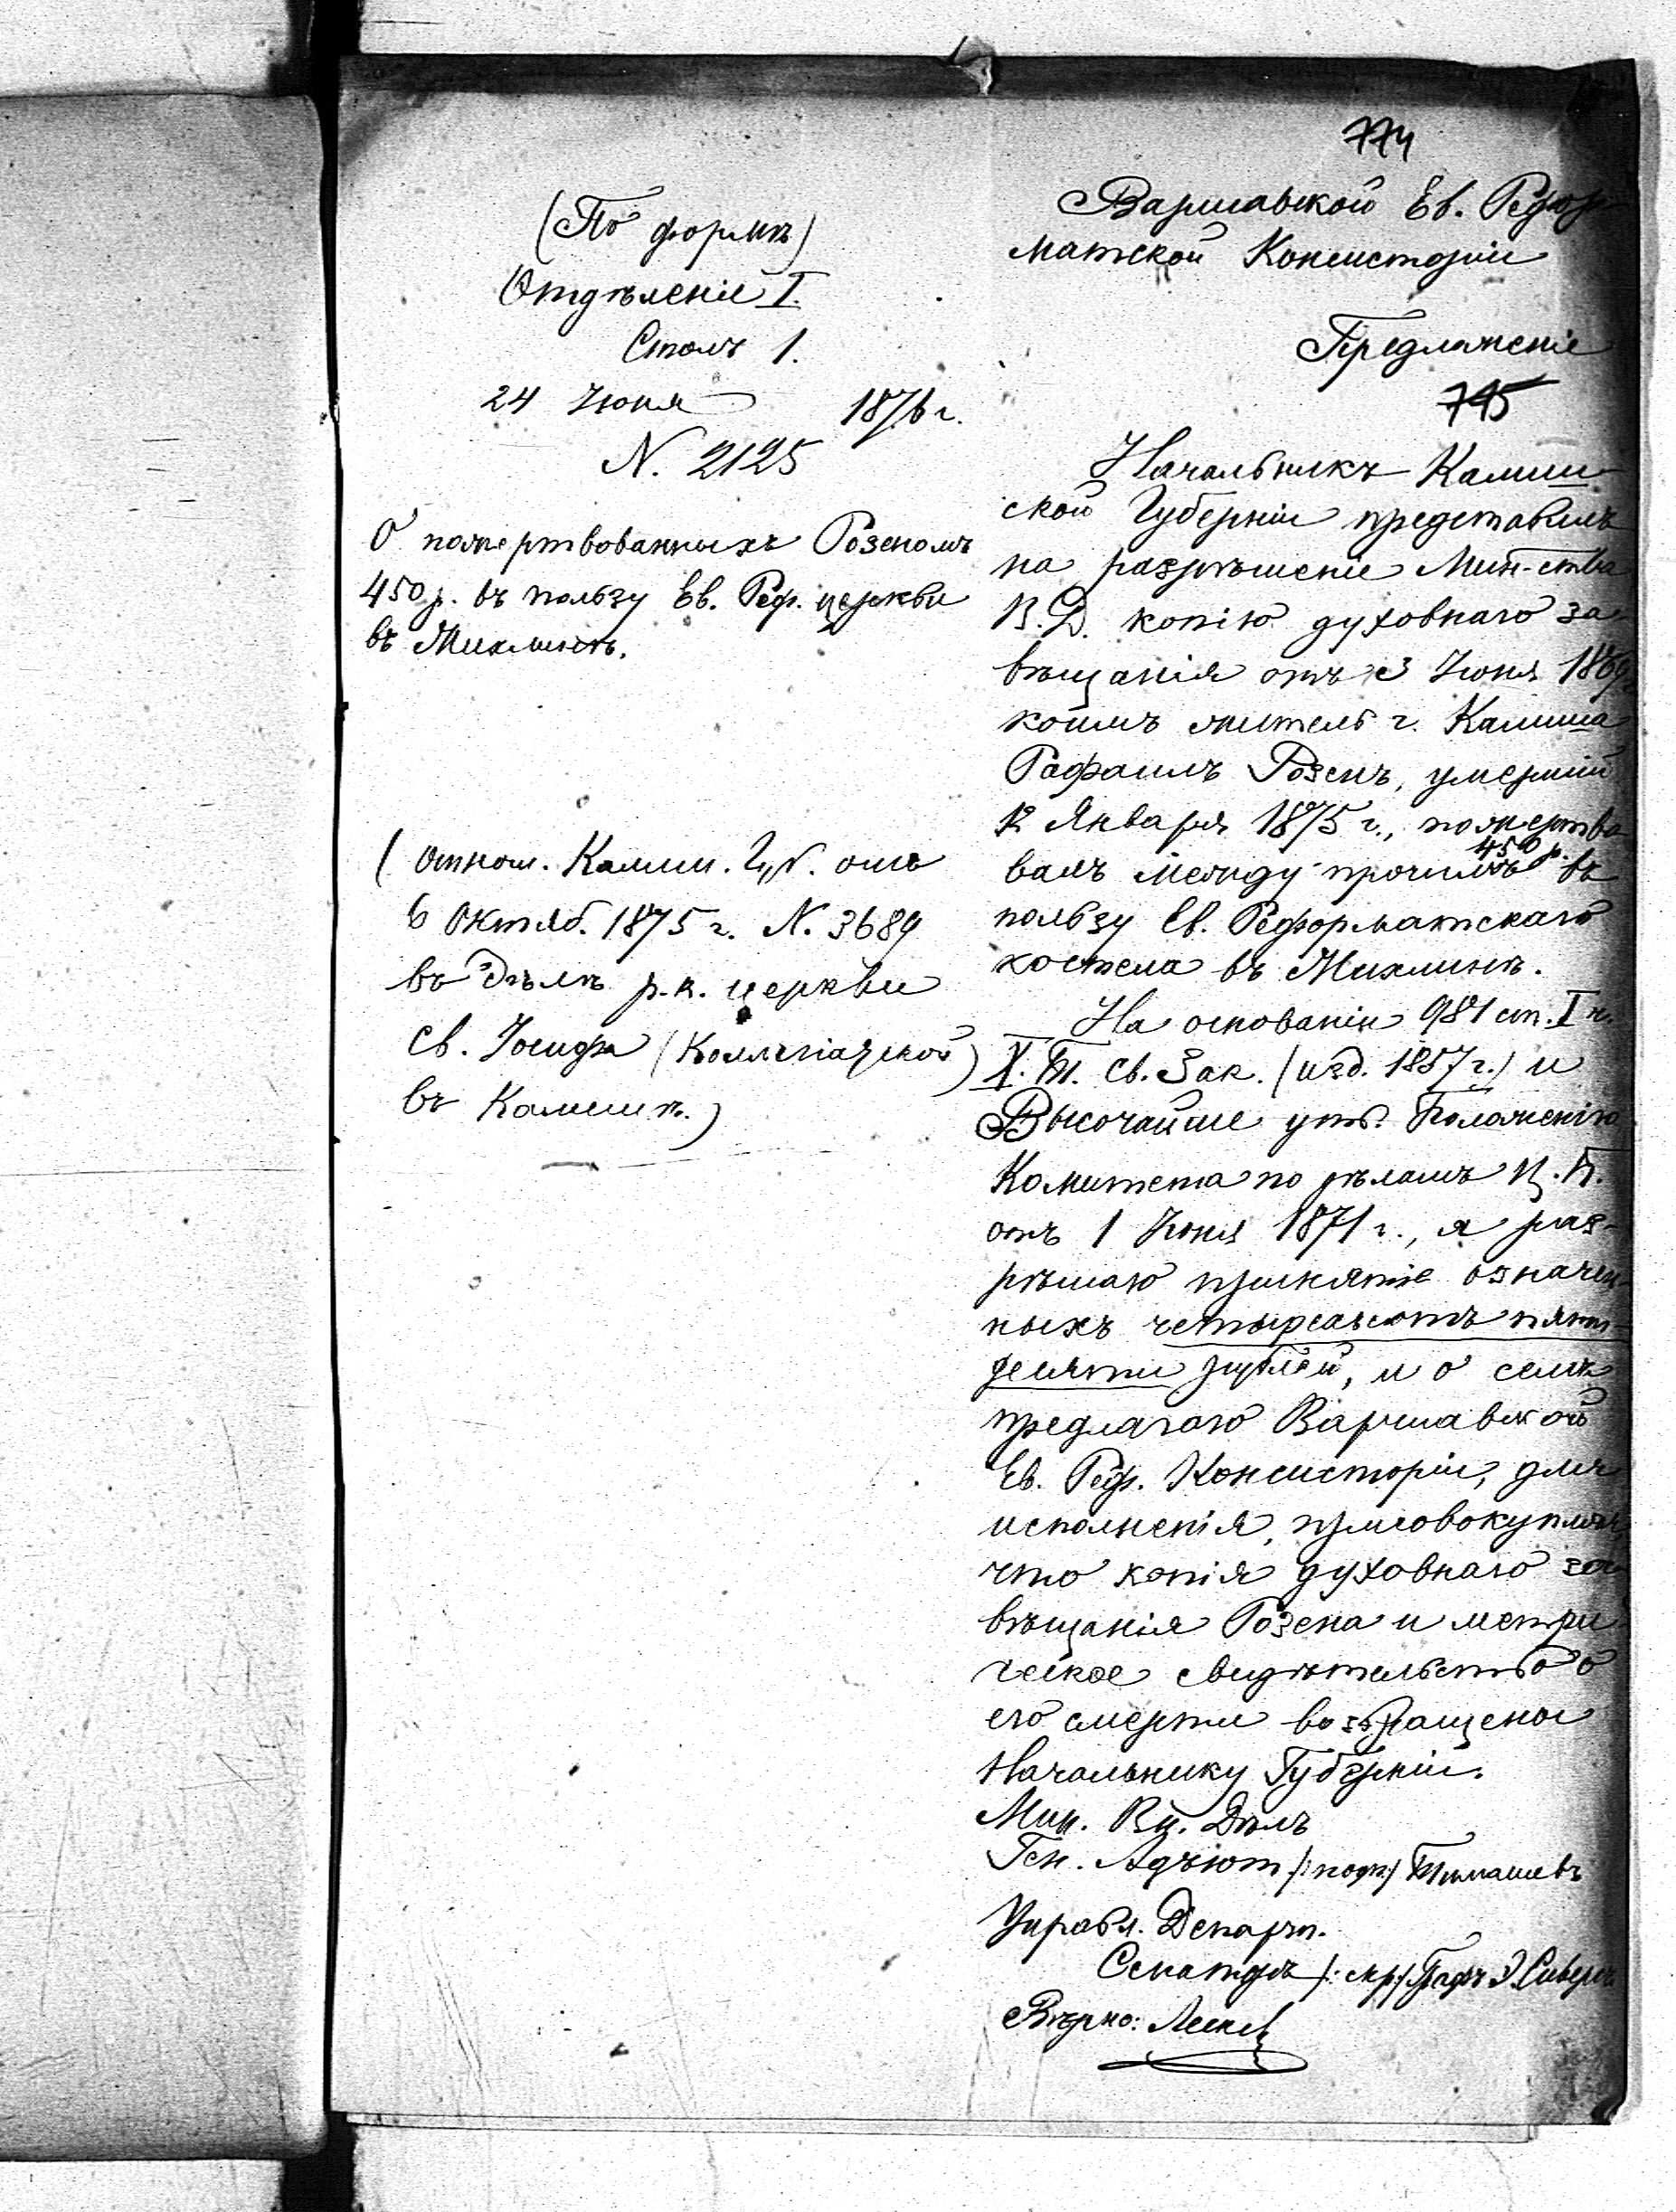 774
(По формѣ)
Отдѣленіе I.
Столъ 1.
24 Іюня 1876 г.
N. 2125
О пожертвованныхъ Розеномъ
450 р. въ пользу Ев. Реф. церкви
въ Жихлинѣ.
(Отнош. Калиш. отъ
6 Октяб. 1875 г. N. 3689
въ Дѣлѣ р.к. церкви
Св. Іосифа (Коллегіатской)
въ Калишѣ.)
Варшавской Ев. Рефор-
матской Консисторіи
Предложеніе
745
Начальникъ Калиш-
ской Губерніи представилъ
на разрѣшеніе Мин-ства
В.Д. копію духовнаго за-
вѣщанія отъ 3 Іюня 1869
коимъ житель г. Калиша
Рафаилъ Розенъ, умершій
12 Января 1875 г., пожертво-
валъ между прочимъ 450 р. въ
пользу Ев. Реформатскаго
костела въ Жихлинѣ.
На основаніи 981 ст. I ч.
X. Т. Св. Зак. (изд. 1857 г.) и
Высочайше утв. Положенію
Комитета по дѣламъ Ц. П.
отъ 1 Іюня 1871 г., я раз-
рѣшаю принятіе означен-
ныхъ четырехсотъ пяти-
десяти рублей, и о семъ
предлагаю Варшавской
Ев. Реф. Консисторіи, для
исполненія, присовокупляя
что копія духовнаго за-
вѣщанія Розена и метри-
ческое свидѣтельство о
его смерти возвращены
Начальнику Губерніи.
Мин. Вн. Дѣлъ
Ген. Адъют /: подп:/ Тимашевъ
Управл. Департ.
Сенаторъ /: скр:/ Графъ Э. Сиверсъ
Вѣрно: